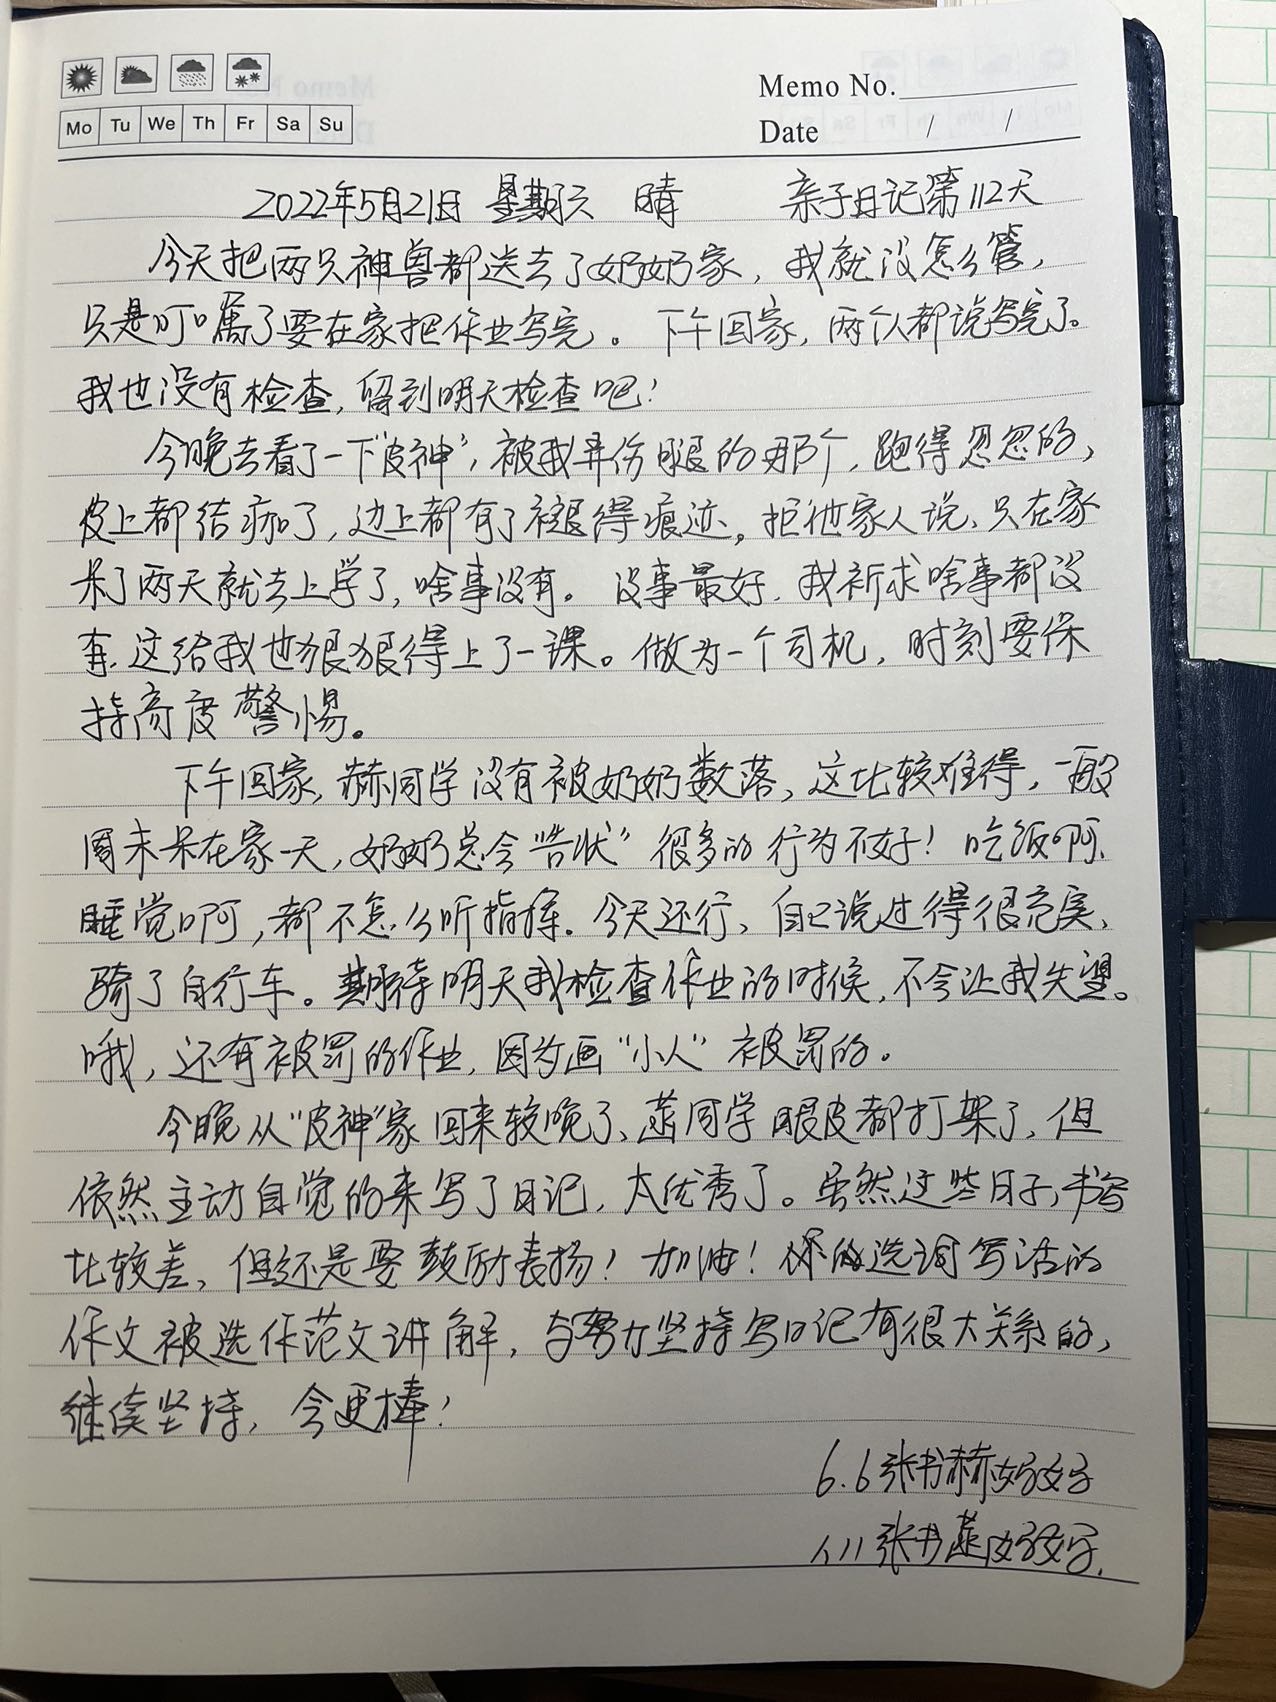 Mo Tu We Th Fr Sa Su
Memo No.
Date / /
2022年5月21日 星期六 晴 亲子日记第112天
今天把两只神兽都送去了奶奶家，我就没怎么管，
只是叮嘱了要在家把作业写完。下午回家，两个人都说写完了。
我也没有检查，留到明天检查吧！
今晚去看了一下“皮神”，被我弄伤腿的那个，跑得忽忽的，
皮上都结痂了，边上都有了褪得痕迹。拒他家人说，只在家
呆了两天就去上学了，啥事没有。没事最好，我祈求啥事都没
有，这给我也狠狠得上了一课。做为一个司机，时刻要保
持高度警惕。
下午回家，赫同学没有被奶奶数落，这比较难得，一般
周末呆在家一天，奶奶总会“告状”很多的行为不好！吃饭啊、
睡觉啊，都不怎么听指挥。今天还行，自己说过得很充实，
骑了自行车。期待明天我检查作业的时候，不会让我失望。
哦，还有被罚的作业，因为画“小人”被罚的。
今晚从“皮神”家回来较晚了，菡同学眼皮都打架了，但
依然主动自觉的来写了日记，太优秀了。虽然这些日子，书写
比较差，但还是要鼓励表扬！加油！你的选词写话的
作文被选作范文讲解，与努力坚持写日记有很大关系的，
继续坚持，会更棒！
6.6张书赫好好
张书菡好好